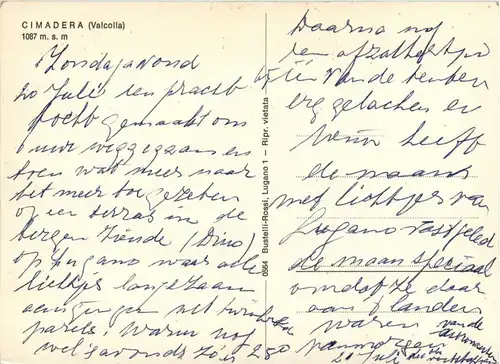 CIMADERA (Valcolla)
1087 m. s. m
Zondagavond
20 Juli een pracht
tocht gemaakt om
uur weggegaan en
toen wat meer naar
het meer toe gereden
op een terras in de
bergen ziende (Dino)
op Lugano waar alle
lichtjes langzaam
aangingen net
parels. Warm nog
wel 's avonds zo'n 28°
6564 Bustelli-Rossi, Lugano 1 — Ripr. vietata
Daarna nog
een
van de tenten
erg gelachen en
heeft
de maan
met lichtjes van
Lugano vastgelegd
de maan speciaal
omdat ze daar
aan 't landen
waren van de
20 Juli